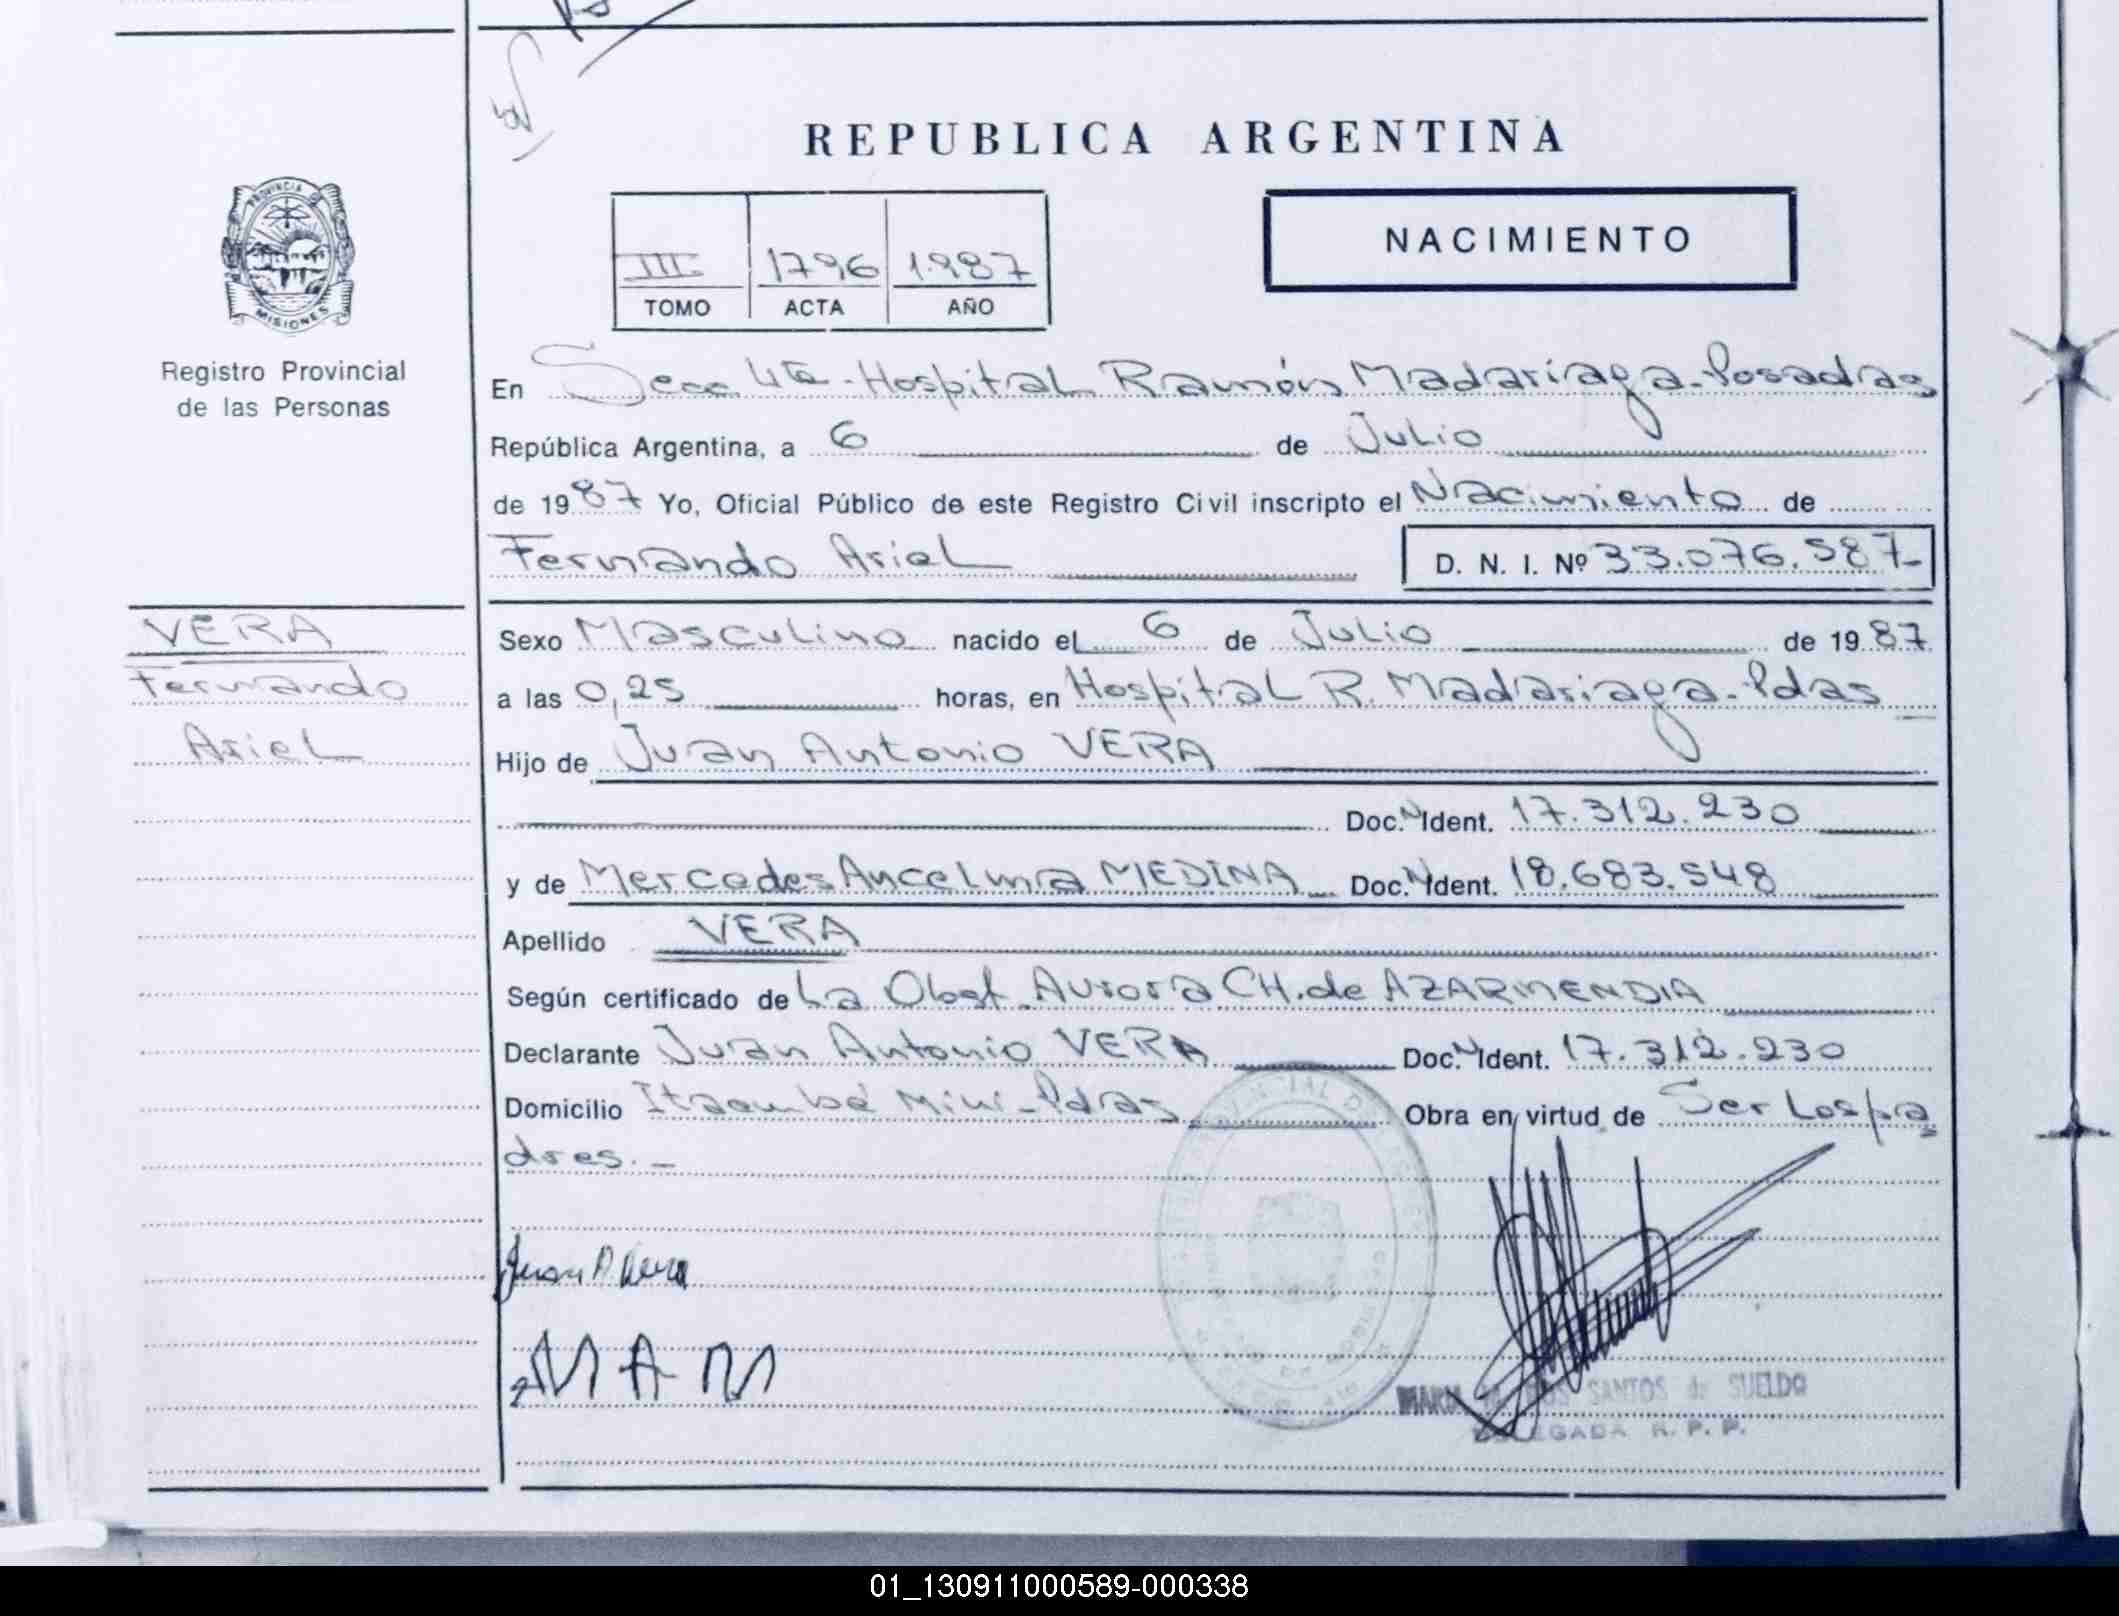 REPUBLICA ARGENTINA
NACIMIENTO
III 1796 1.987
TOMO ACTA AÑO
PROVINCIA DE
MISIONES
Registro Provincial
de las Personas
En Secc 4ta - Hospital Ramón Madariaga - Posadas
República Argentina, a 6 de Julio
de 1987 Yo, Oficial Público de este Registro Civil inscripto el Nacimiento de
Fernando Ariel D. N. I. Nº 33.076.587-
VERA
Fernando
Ariel
Sexo Masculino nacido el 6 de Julio de 1987
a las 0,25 horas, en Hospital R. Madariaga - Pdas
Hijo de Juan Antonio VERA
Doc. N Ident. 17.312.230
y de Mercedes Ancelma MEDINA Doc. N Ident. 18.683.548
Apellido VERA
Según certificado de La Obst. Aurora CH. de AZARMENDIA
Declarante Juan Antonio VERA Doc. N Ident. 17.312.230
Domicilio Itaembé Mini - Pdas Obra en virtud de Ser Los pa
dres. -
Juan A Vera
MAM
SANTOS de SUELDO
DELEGADA R. P. P.
01_130911000589-000338